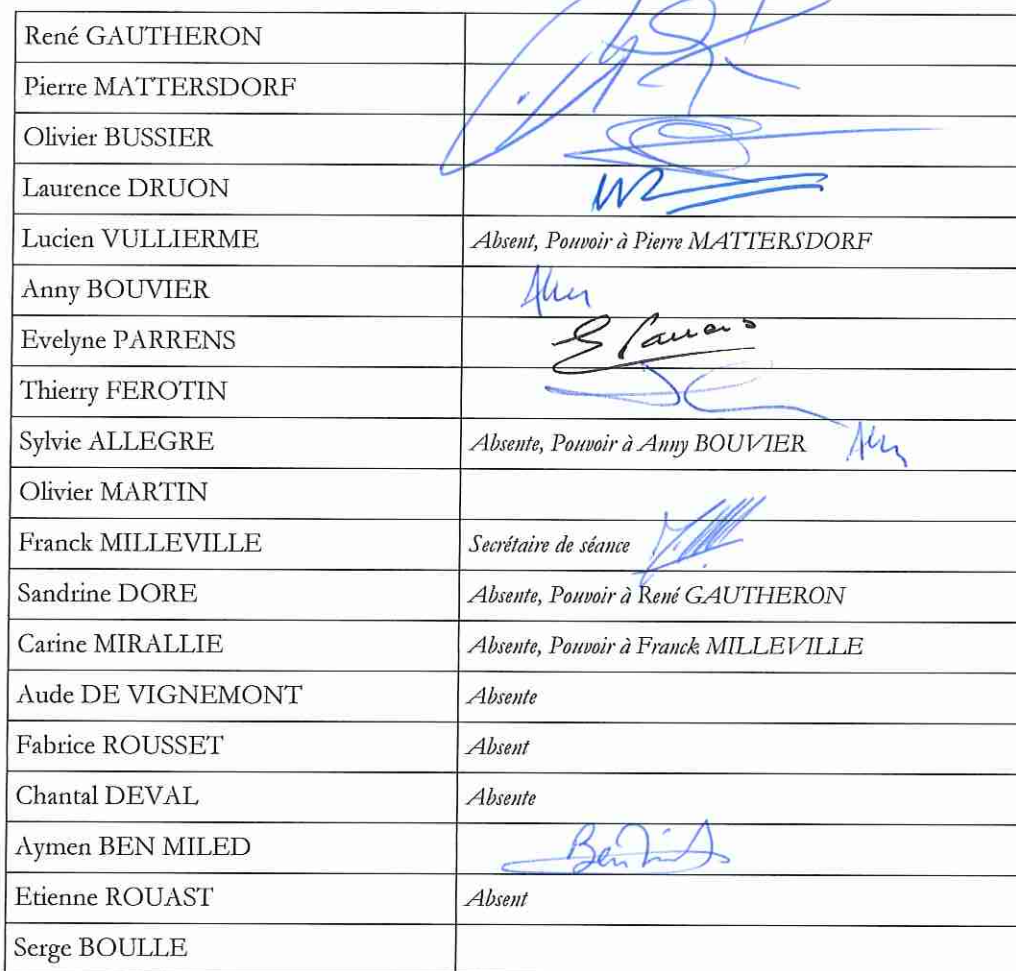 René GAUTHERON
Pierre MATTERSDORF
Olivier BUSSIER
Laurence DRUON
Lucien VULLIERME Absent, Pouvoir à Pierre MATTERSDORF
Anny BOUVIER
Evelyne PARRENS
Thierry FEROTIN
Sylvie ALLEGRE Absente, Pouvoir à Anny BOUVIER
Olivier MARTIN
Franck MILLEVILLE Secrétaire de séance
Sandrine DORE Absente, Pouvoir à René GAUTHERON
Carine MIRALLIE Absente, Pouvoir à Franck MILLEVILLE
Aude DE VIGNEMONT Absente
Fabrice ROUSSET Absent
Chantal DEVAL Absente
Aymen BEN MILED
Etienne ROUAST Absent
Serge BOULLE